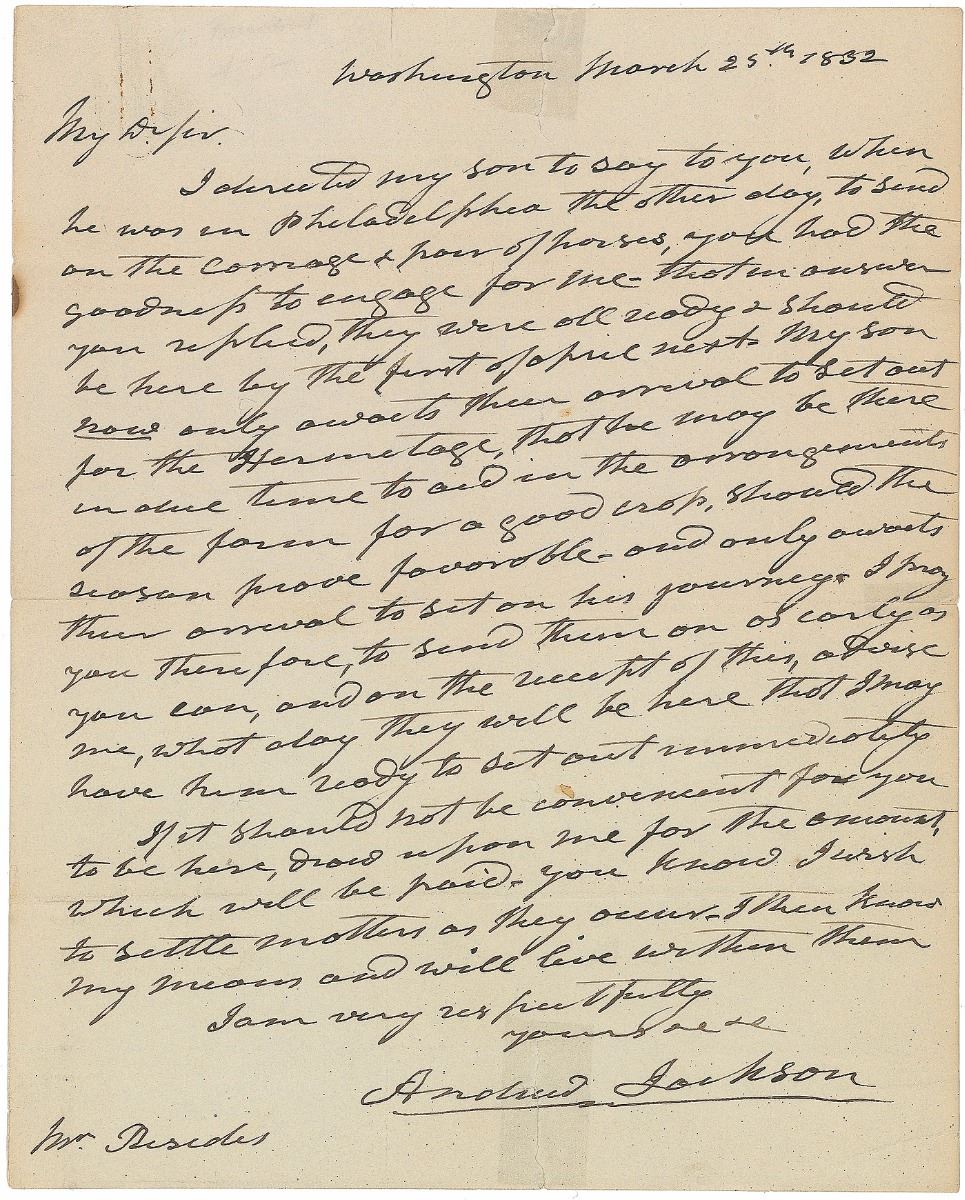 Washington March 25th 1832
My Dr Sir.
I directed my son to say to you, when
he was in Philadelphia the other day, to send
on the carriage & pair of horses, you had the
goodness to engage for me - that in answer
you replied, they were all ready & should
be here by the first of april next - My son
now only awaits their arrival to set out
for the Hermitage, that he may be there
in due time to aid in the arrangements
of the farm for a good crop, should the
season prove favorable - and only awaits
their arrival to set on his journey - I pray
you therefore, to send them on as early as
you can, and on the receipt of this, advise
me, what day they will be here that I may
have him ready to set out immediately
If it should not be convenient for you
to be here, draw upon me for the amount,
which will be paid - you know I wish
to settle matters as they occur - I then know
my means and will live within them
I am very respectfully
yours &c &c
Andrew Jackson
Mr Besides